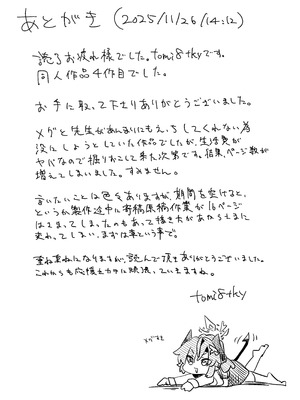 あとがき (2025/11/26/14:12)
読了お疲れ様でした。tomi8tkyです。
同人作品4作目でした。
お手に取って下さりありがとうございました。
メグと先生があんまりにもえっちしてくれない為
没にしようとしていた作品でしたが、生活費が
ヤバなので掘りおこして来た次第です。結果、ページ数が
増えてしまいました。すみません。
言いたいことは色々ありますが、期間を空けると、
というか製作途中に寄稿原稿作業が16ページ
はさまってしまったのもあって描き方があたらまに
来れってしまい、まずは来という事で。
重ね重ねになりますが、読んで頂きありがとうございました。
これからも応援をカテに頑張っていきますね。
tomi8tky